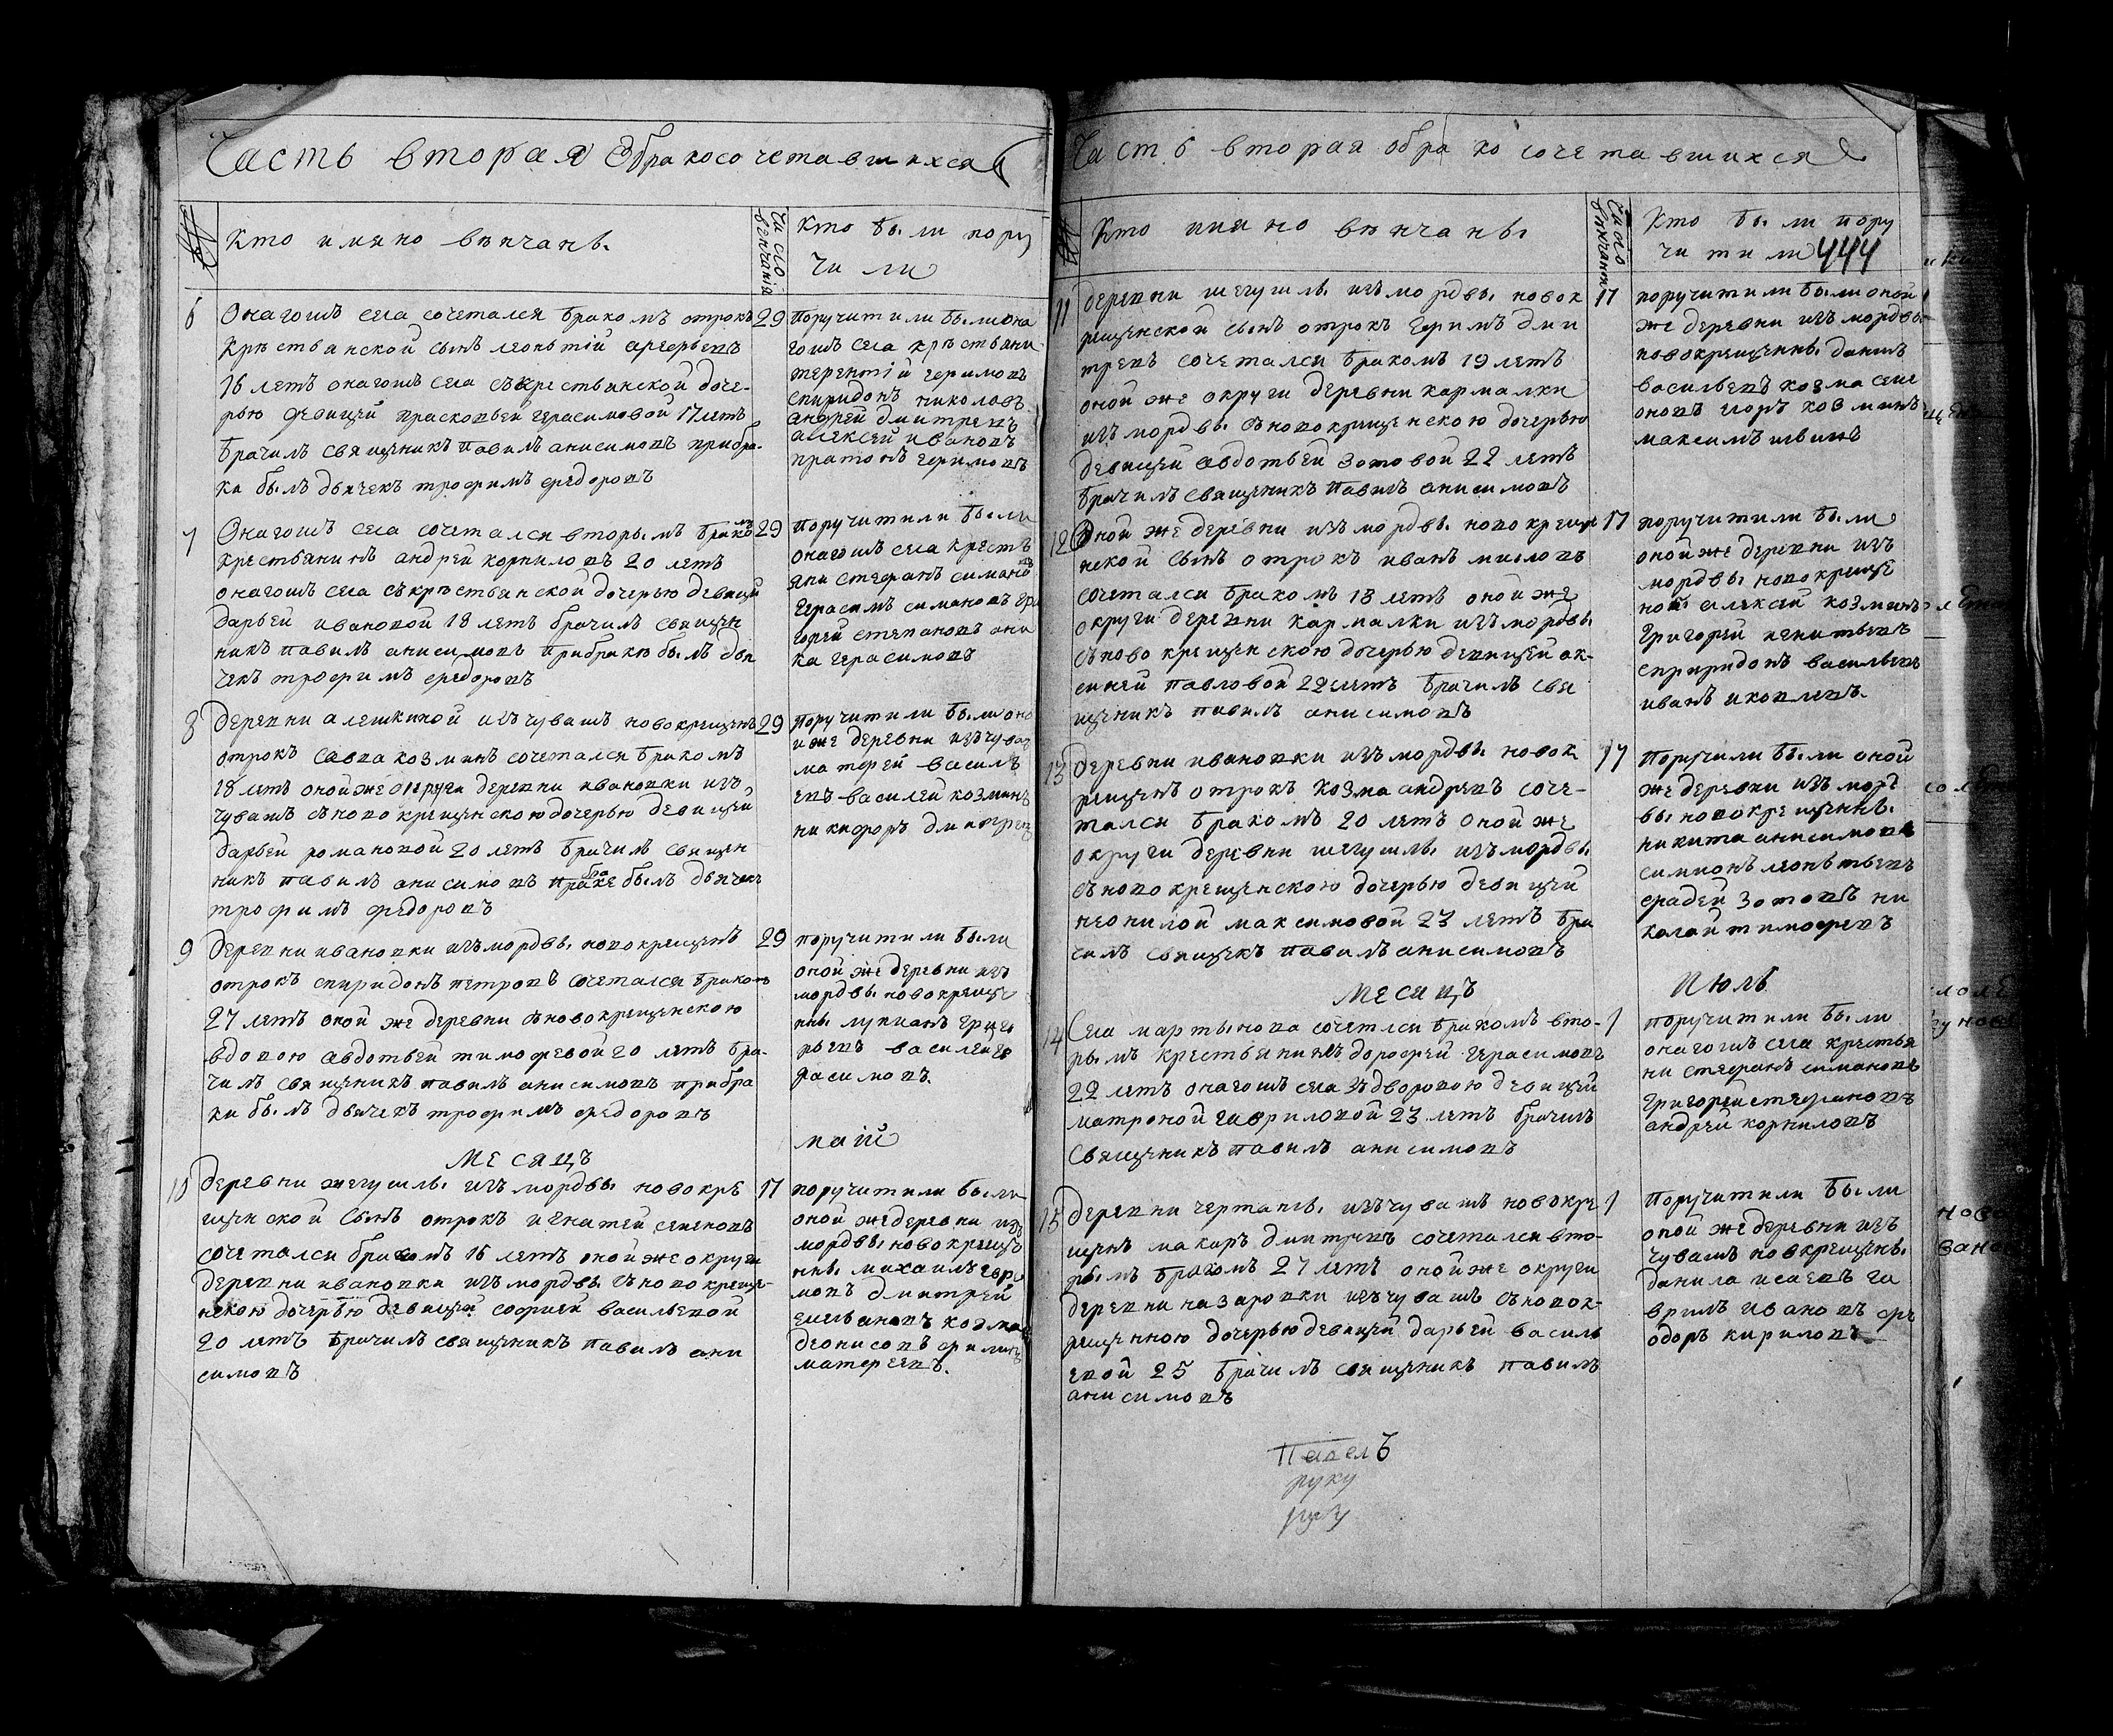 Часть вторая Обракосочетавшихся
Кто имяно венчаны
Число венчания
Кто были пору
чили
6
Онагошъ села сочетался бракомъ отрокъ
крестьянской сынъ леонътий арефьевъ
16 летъ онагошъ села съкрестьянской доче-
рью девицей прасковьей герасимовой 17 летъ
брачилъ священикъ павилъ анисимовъ прибра-
ка былъ дьячекъ трофимъ федоровъ
29
поручитили были она
гошъ села крестьяни
терентий
спиридонъ николаевъ
андрей дмитревъ
алексей ивановъ
7
Онагошъ села сочетался вторымъ бракомъ
крестьянинъ андрей корниловъ 20 летъ
онагошъ села съкрестьянской дочерью девицей
дарьей ивановой 18 летъ брачилъ священ
никъ павилъ анисимовъ прибраке былъ дья
чекъ трофимъ федоровъ
29
поручитили были
онагошъ села крестъ
яни стефанъ симано
герасимъ симановъ гри
горей степановъ они
ка герасимовъ
8
деревни алешкиной изъчувашъ новокрещенъ
отрокъ савва козминъ сочетался бракомъ
18 летъ онойже округи деревни ивановки изъ
чувашъ сновокрещенскою дочерью девицей
дарьей романовой 20 летъ брачилъ священ
никъ павилъ анисимовъ прибраке былъ дьячекъ
трофимъ федоровъ
29
поручитили были оно
и же деревни изъчуваш
матфей василь
евъ василей козминъ
никифоръ дмитрев
9
деревни ивановки изъмордвы новокрещенъ
отрокъ спиридонъ петровъ сочетался бракомъ
27 летъ оной же деревни сновокрещенскою
вдовою авдотьей тимофевой 20 летъ бра-
чилъ священикъ павилъ анисимовъ прибра
ки былъ дьячекъ трофимъ федоровъ
29
поручитили были
оной же деревни изъ
мордвы новокреще
ны лукианъ григо
рьевъ василей ге
расимовъ.
Месяцъ
май
10
деревни шегушлы изъ мордвы новокре
щенской сынъ отрокъ игнатей семеновъ
сочетался бракомъ 16 летъ онойже округи
деревни ивановки изъ мордвы сновокреще-
нскою дочерью девицей софией васильевой
20 летъ брачилъ священикъ павилъ ани
симовъ
17
поручитили были
оной жедеревни изъ
мордвы новокреще
ны михаилъ ефи
мовъ дмитрей
емельяновъ козма
деонисовъ филип
матфеевъ.
Часть вторая обракосочетавшихся
Кто имяно венчаны
Число венчания
Кто были пору
читили 444
11
деревни шегушлы изъ мордвы новок
рещенской сынъ отрокъ ефимъ дми
тревъ сочетался бракомъ 19 летъ
оной же округи деревни кармалки
изъ мордвы сновокрещенскою дочерью
девицей авдотьей зотовой 22 летъ
брачилъ священикъ павилъ анисимовъ
17
поручитили были оной
же деревни изъ мордвы
новокрещены данилъ
васильевъ козма семе
оновъ егоръ козминъ
максимъ
12
Оной же деревни изъ мордвы новокреще
нской сынъ отрокъ иванъ
сочетался бракомъ 18 летъ оной же
округи деревни кармалки изъ мордвы
сново крещенскою дочерью девицей ак-
синей павловой 22 летъ брачилъ свя
щеникъ павилъ анисимовъ
17
поручитили были
оной же деревни изъ
мордвы новокреще
ной алексей козминъ
григорей никитьевъ
спиридонъ васильевъ
иванъ яковлевъ.
13
деревни ивановки изъ мордвы новок
рещенъ отрокъ козма андревъ соче-
тался бракомъ 20 летъ оной же
округи деревни шегушлы изъ мордвы
сновокрещенскою дочерью девицей
неонилой максимовой 23 летъ бра
чилъ священикъ павилъ анисимовъ
17
поручили были оной
же деревни изъ морд
вы новокрещены
никита анисимовъ
симионъ леонътьевъ
фадей зотовъ ни
колай тимофевъ
Месяцъ
Июль
14
Села мартынова сочетлся бракомъ вто-
рымъ крестьянинъ дорофей герасимовъ
22 летъ онагошъ села здворовою девицей
матроной гавриловой 23 летъ брачилъ
священикъ павилъ анисимовъ
1
поручитили были
онагошъ села крестья
ни стефанъ симановъ
григорей стефановъ
андрей корниловъ
15
деревни чертаны изъчувашъ новокре
щенъ макаръ дмитревъ сочетался вто-
рымъ бракомъ 27 летъ онойже округи
деревни назаровки изъчувашъ сновок-
рещенною дочерью девицей дарьей василь
евой 25 брачилъ священикъ павилъ
анисимовъ
1
поручитили были
оной же деревни изъ
чувашъ новкрещены
данила исаевъ га
врилъ ивановъ фе
одоръ кириловъ
Павелъ
руку